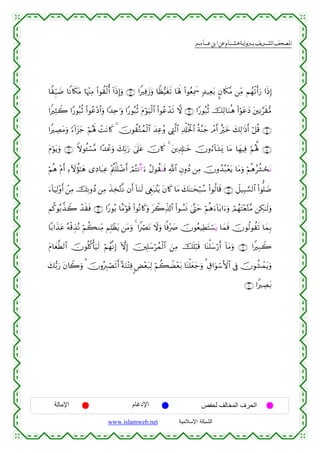 المصحف الشريف برواية هشام عن ابن عامر
إِذَا رَأَتْهُم مِّن مَّكَانٍۭ بَعِيدٍ سَمِعُوا۟ لَهَا تَغَيُّظًا وَزَفِيرًا ۝ وَإِذَآ أُلْقُوا۟ مِنْهَا مَكَانًا ضَيِّقًا
مُّقَرَّنِينَ دَعَوْا۟ هُنَالِكَ ثُبُورًا ۝ لَّا تَدْعُوا۟ ٱلْيَوْمَ ثُبُورًا وَٰحِدًا وَٱدْعُوا۟ ثُبُورًا كَثِيرًا
۝ قُلْ أَذَٰلِكَ خَيْرٌ أَمْ جَنَّةُ ٱلْخُلْدِ ٱلَّتِى وُعِدَ ٱلْمُتَّقُونَ ۚ كَانَتْ لَهُمْ جَزَآءً وَمَصِيرًا
۝ لَّهُمْ فِيهَا مَا يَشَآءُونَ خَٰلِدِينَ ۚ كَانَ عَلَىٰ رَبِّكَ وَعْدًا مَّسْـُٔولًا ۝ وَيَوْمَ
نَحْشُرُهُمْ وَمَا يَعْبُدُونَ مِن دُونِ ٱللَّهِ فَنَقُولُ ءَأَنتُمْ أَضْلَلْتُمْ عِبَادِى هَٰٓؤُلَآءِ أَمْ هُمْ
ضَلُّوا۟ ٱلسَّبِيلَ ۝ قَالُوا۟ سُبْحَٰنَكَ مَا كَانَ يَنۢبَغِى لَنَآ أَن نَّتَّخِذَ مِن دُونِكَ مِنْ أَوْلِيَآءَ
وَلَٰكِن مَّتَّعْتَهُمْ وَءَابَآءَهُمْ حَتَّىٰ نَسُوا۟ ٱلذِّكْرَ وَكَانُوا۟ قَوْمًۢا بُورًا ۝ فَقَدْ كَذَّبُوكُم
بِمَا تَقُولُونَ فَمَا يَسْتَطِيعُونَ صَرْفًا وَلَا نَصْرًا ۚ وَمَن يَظْلِم مِّنكُمْ نُذِقْهُ عَذَابًا
كَبِيرًا ۝ وَمَآ أَرْسَلْنَا قَبْلَكَ مِنَ ٱلْمُرْسَلِينَ إِلَّآ إِنَّهُمْ لَيَأْكُلُونَ ٱلطَّعَامَ
وَيَمْشُونَ فِى ٱلْأَسْوَاقِ ۗ وَجَعَلْنَا بَعْضَكُمْ لِبَعْضٍ فِتْنَةً أَتَصْبِرُونَ ۗ وَكَانَ رَبُّكَ
بَصِيرًا ۝
الحرف المخالف لحفص الإدغام الإمالة
الشبكة الإسلامية www.islamweb.net